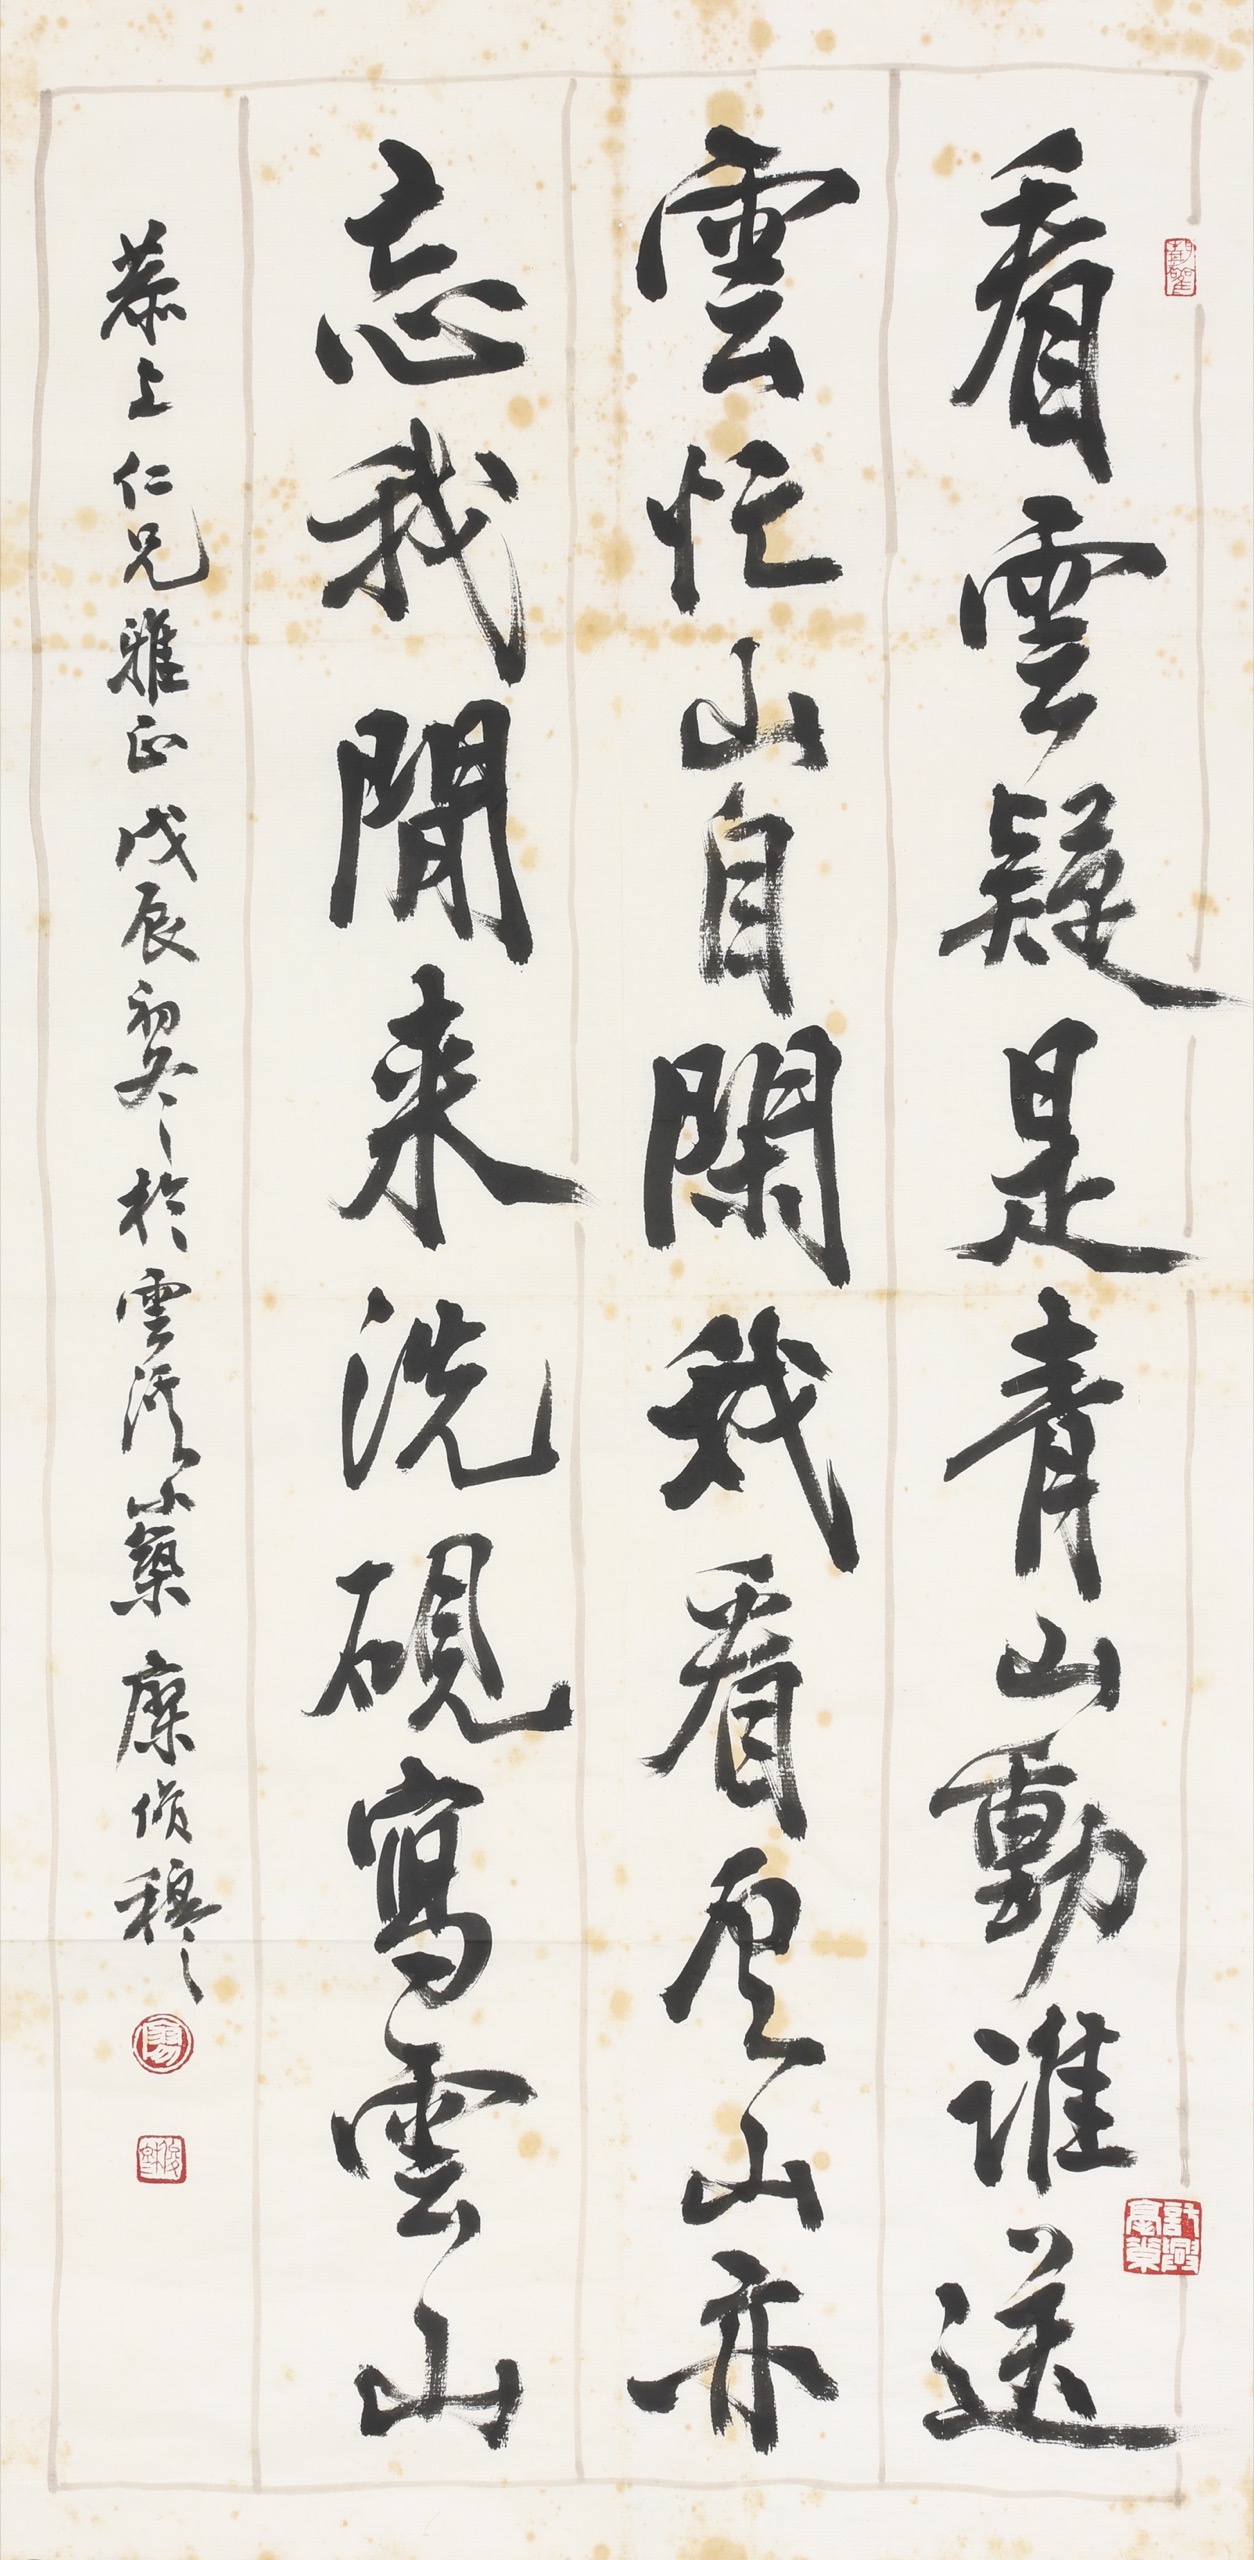 看雲疑是青山動誰送
雲忙山自閑我看雲山亦
忘我閒来洗硯寫雲山
恭上仁兄雅正戊辰初冬於雲小築